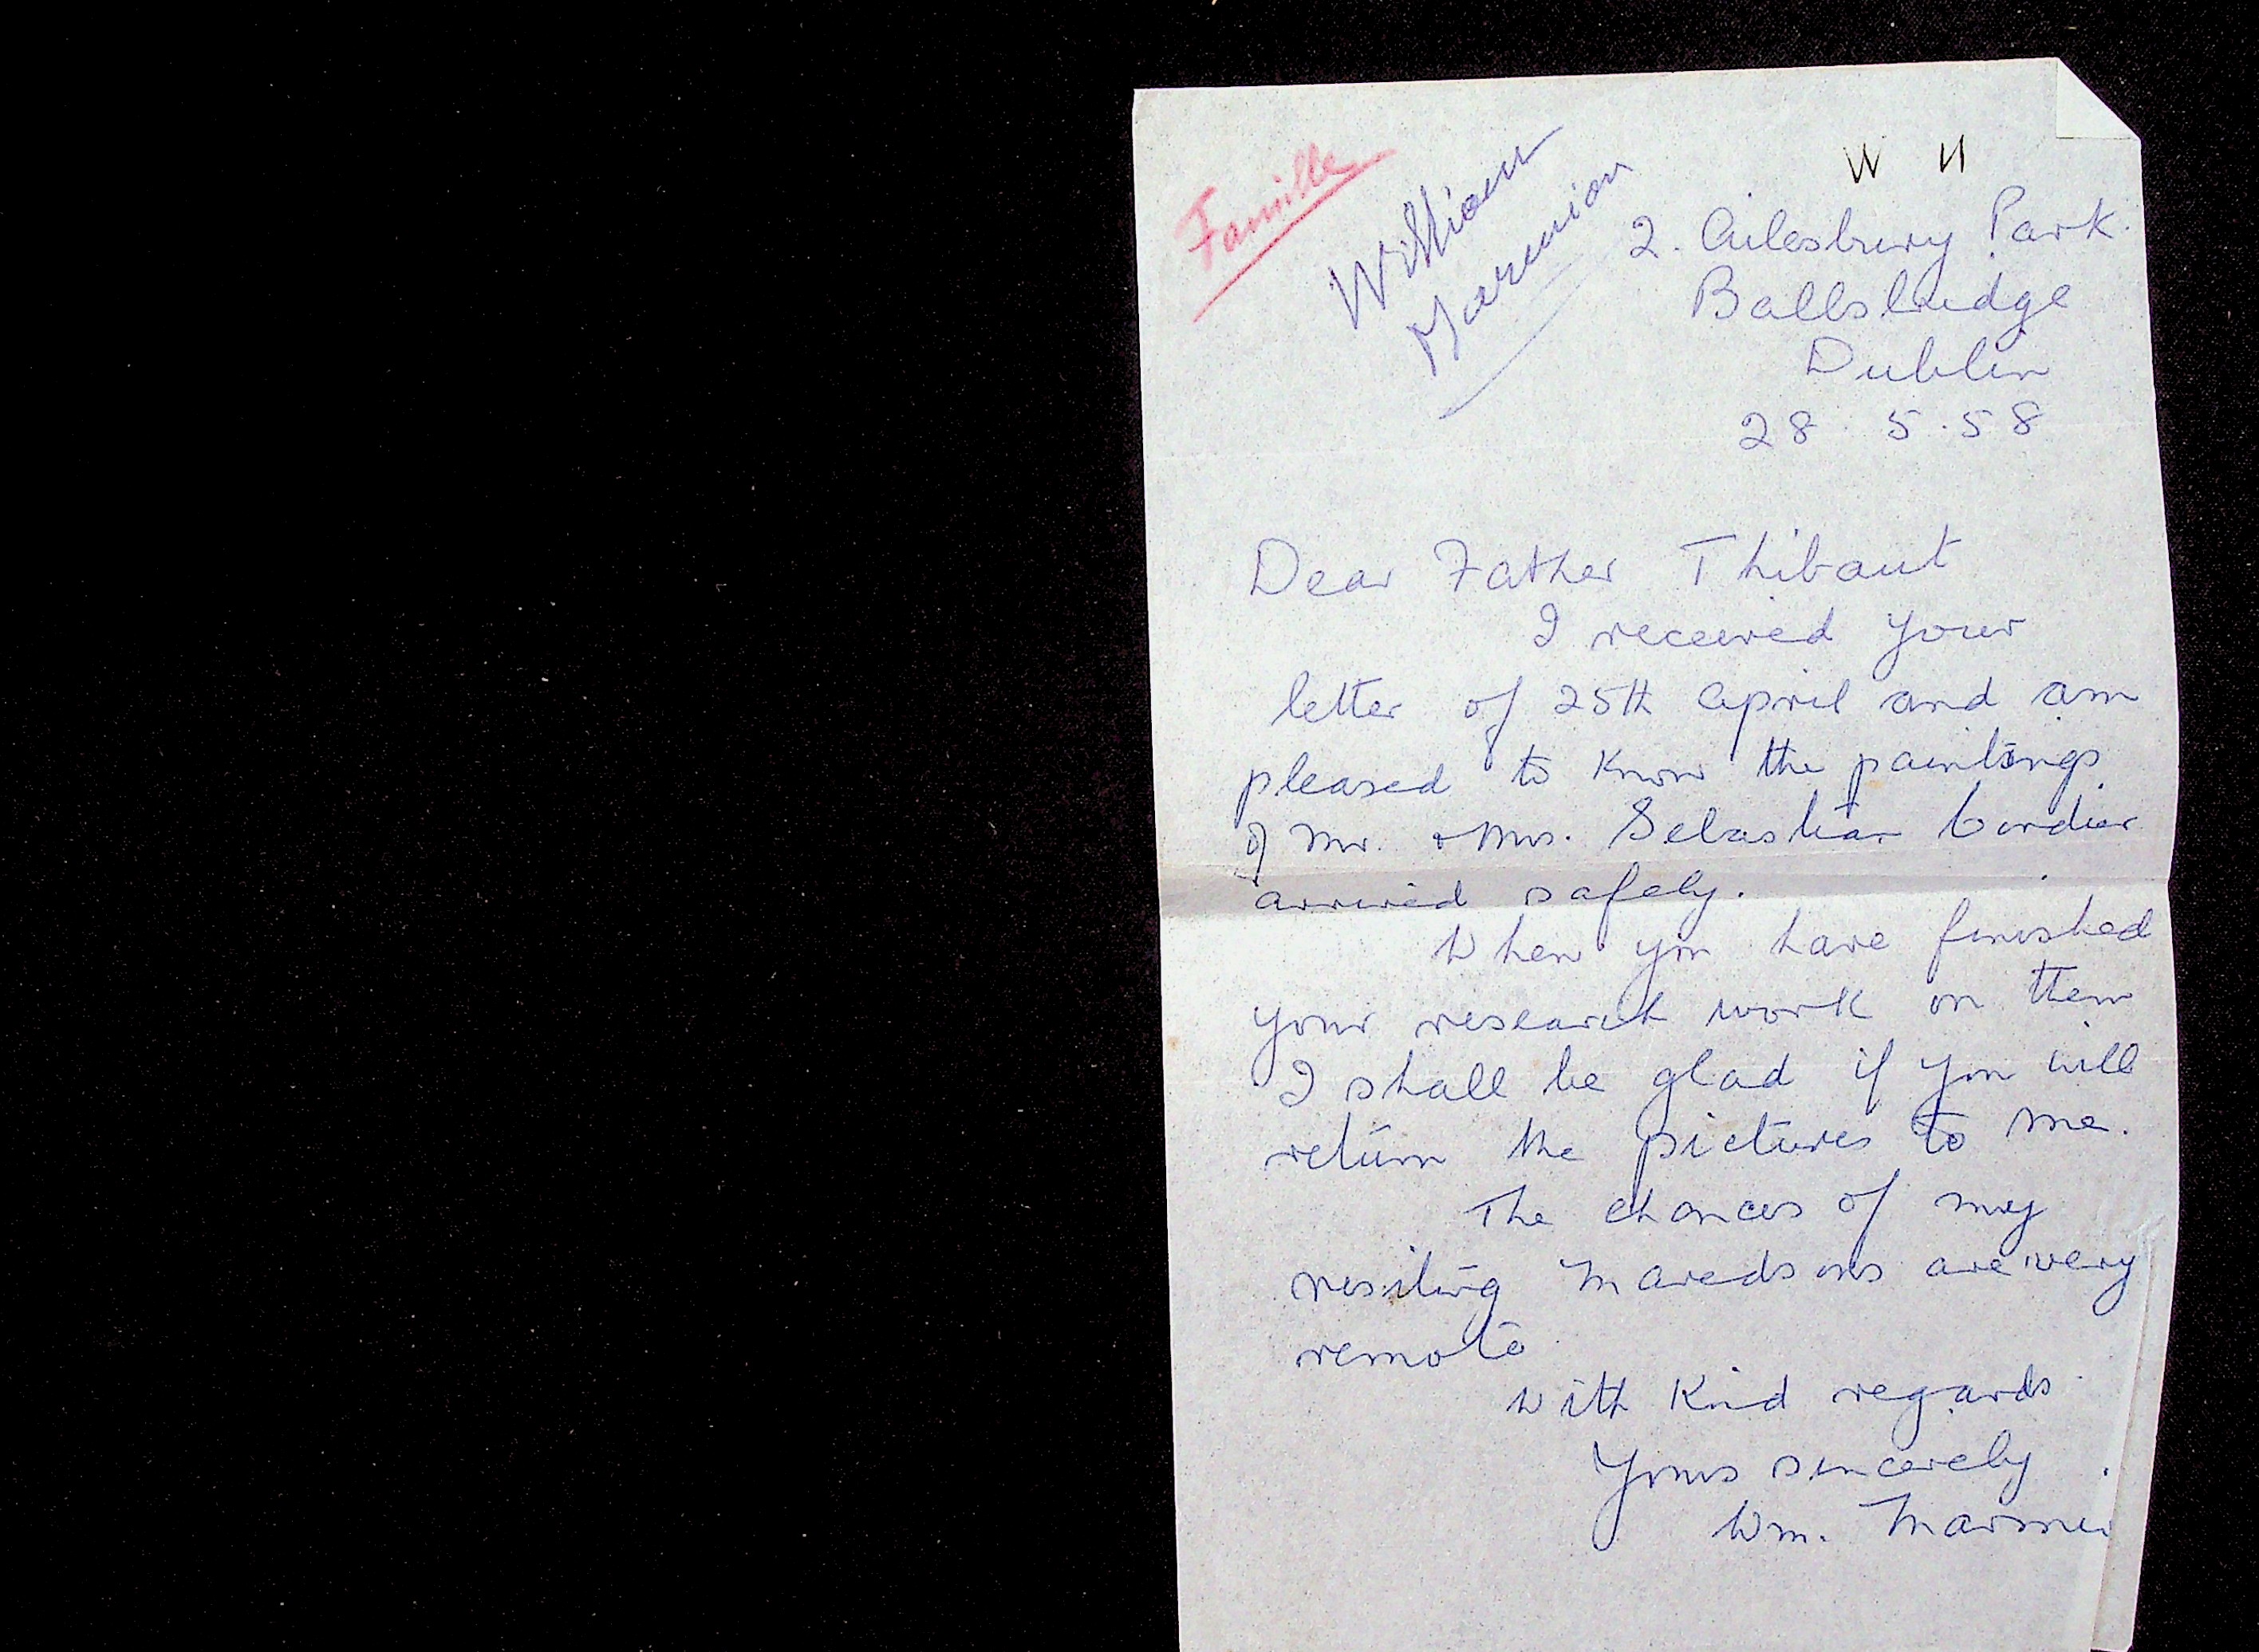 Famille
William
Marmion
W H
2. Ailesbury Park.
Ballsbridge
Dublin
28 5.58
Dear Father Thibaut
I received your
letter of 25th April and am
pleased to know the paintings
of Mr. & Mrs. Sebastian Cordier
arrived safely.
When you have finished
your research work on them
I shall be glad if you will
return the pictures to me.
The chances of my
visiting Maredsous are very
remote
With kind regards
Yours sincerely
Wm.